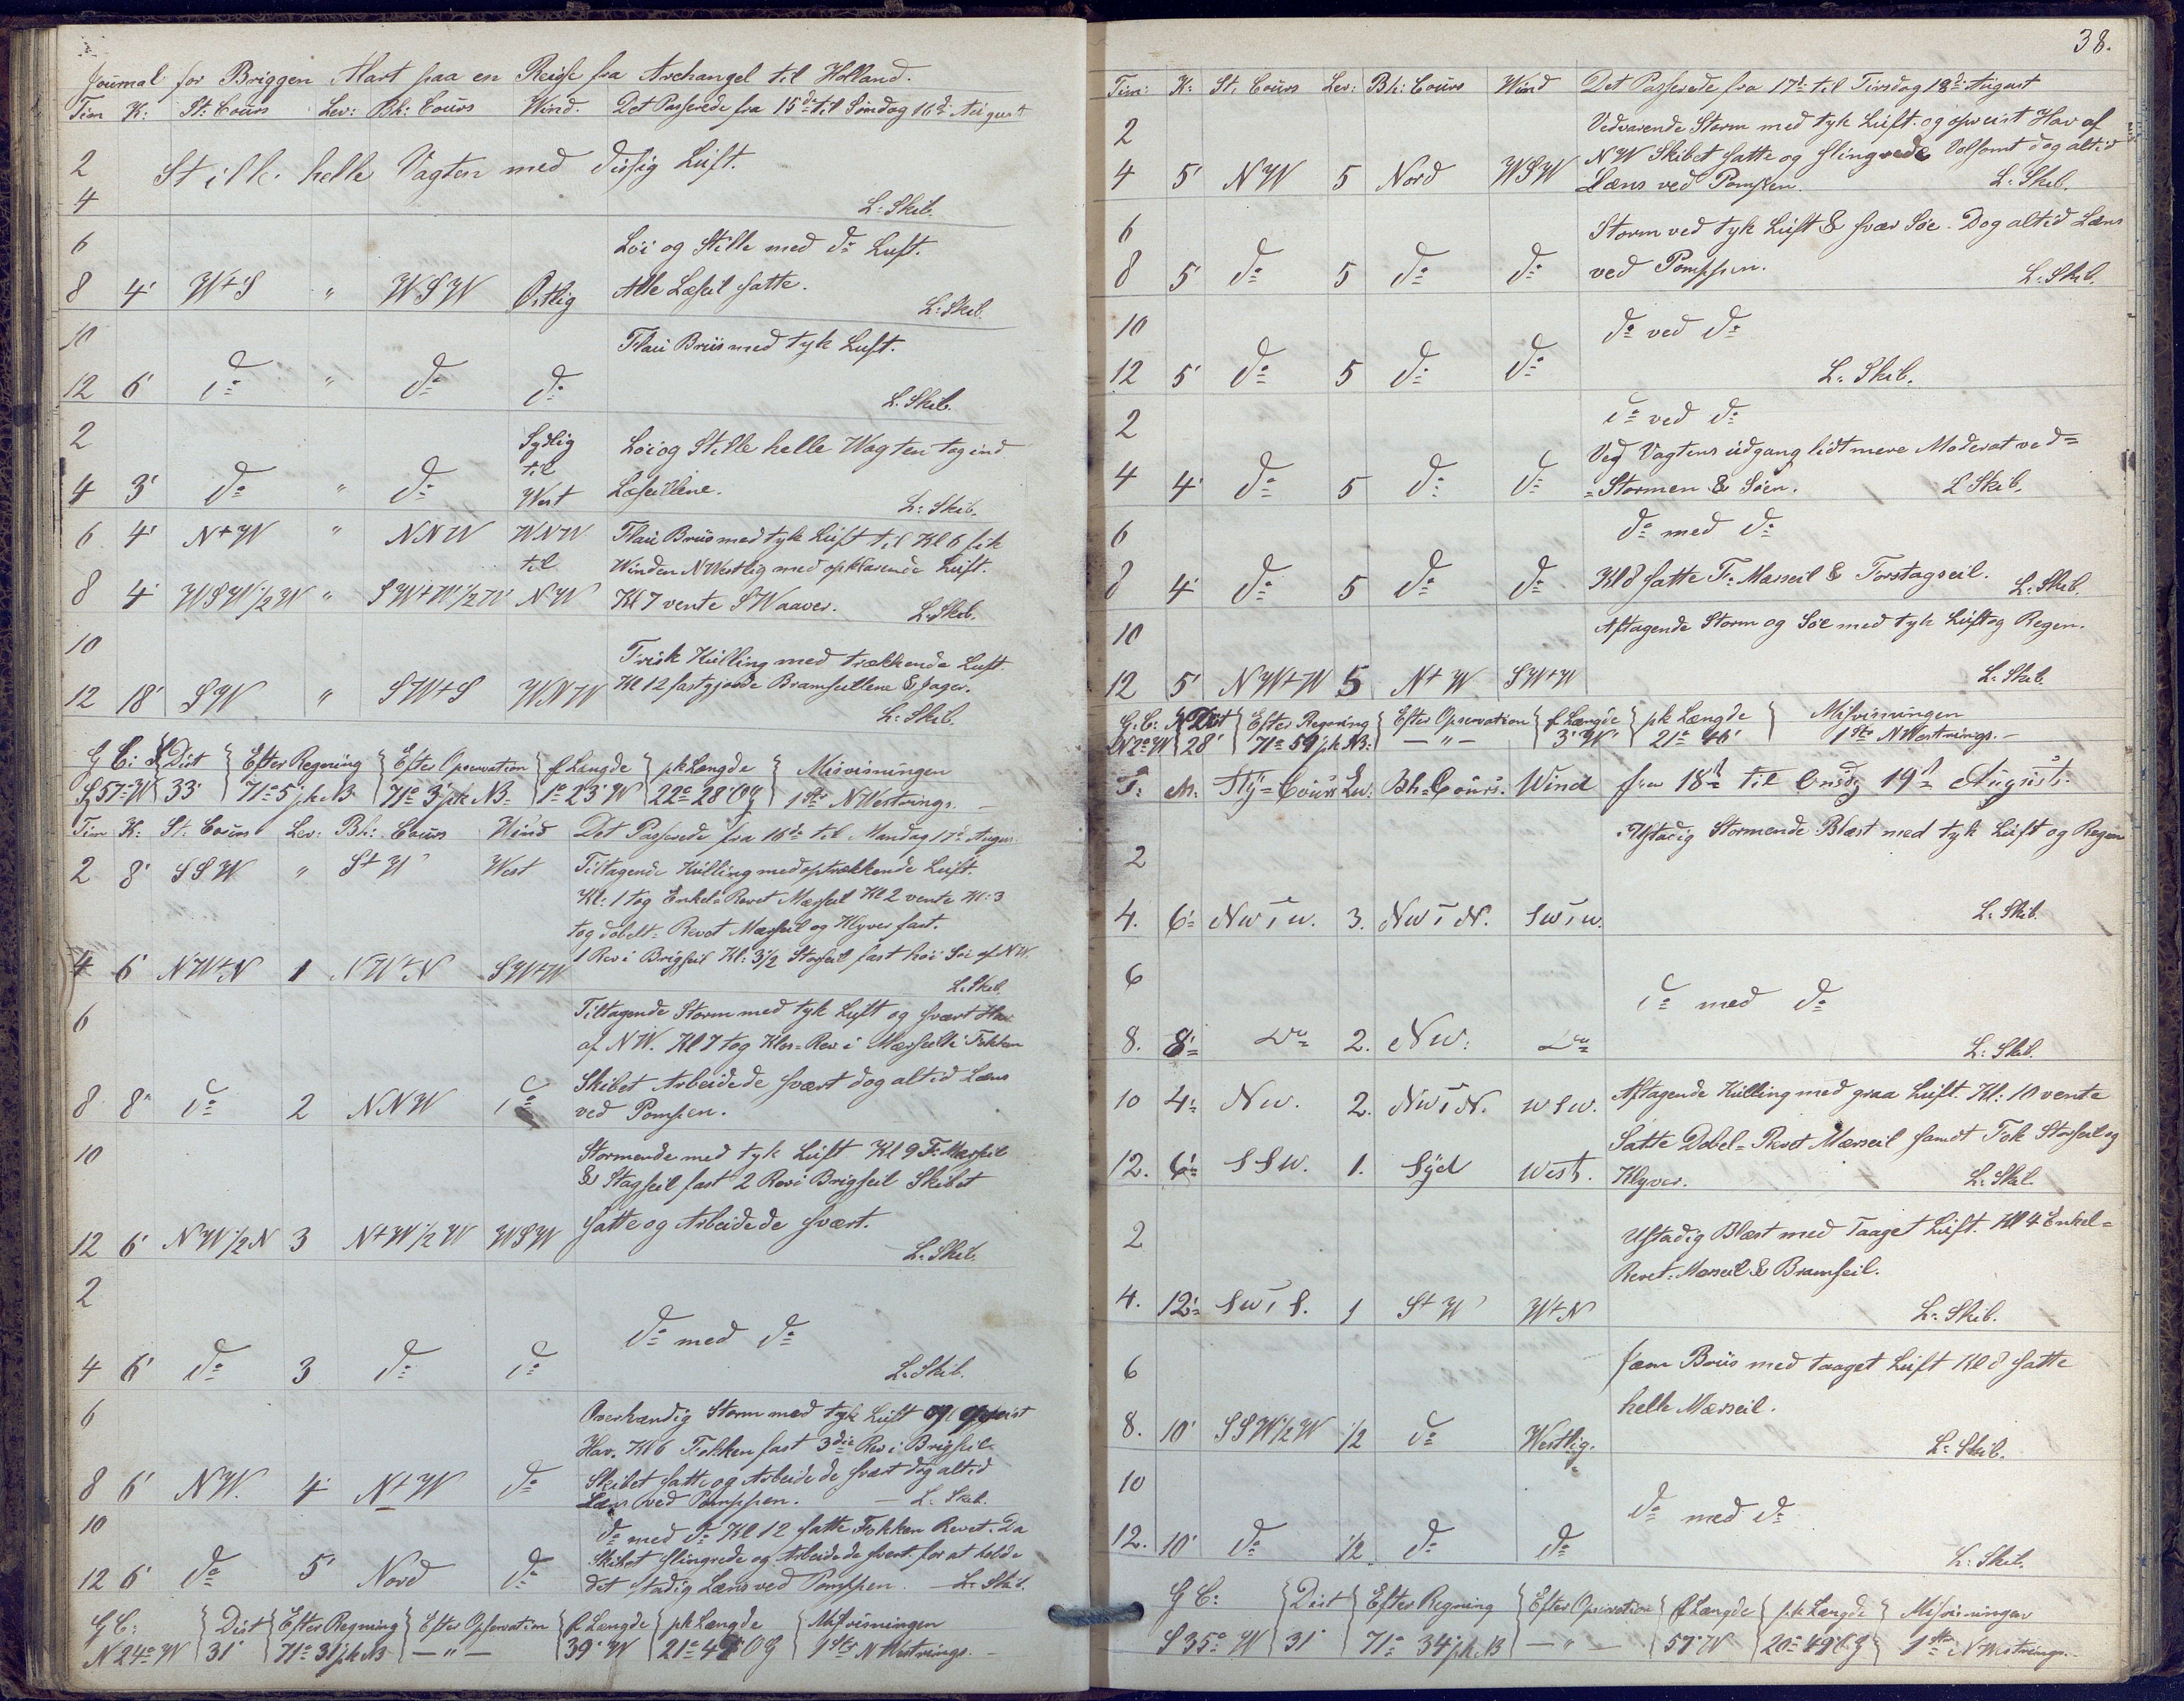 Journal for Briggen Alart paa en Reise fra Archangel til Holland.
Tim K: St: Cours Lev: Bh: Cours Wind. Det Passerede fra 15de til Søndag 16de August
2 Stille helle Vagten med disig Luft.
4 L: Skib.
6 Løi og Stille med do Luft.
8 4' W+S " WSW Østlig Alle Læseil satte.
L: Skib.
10 Flau Briis med tyk Luft.
12 6' do " do do
L. Skib.
2 Sydlig Løi og Stille helle Wagten tog ind
til
4 3' do " do West Læseilene.
L: Skib.
6 4' N+W " NNW WNW Flau Briis med tyk Luft til Kl 6 fik
til Winden NWestlig med opklarende Luft.
8 4' WSW1/2W " SW+W1/2W NW Kl 7 vente SWaaver. L: Skib.
10 Frisk Kulling med trækkende Luft
12 18' SW " SW+S WNW Kl 12 fastgjorde Bramseillene & Jager.
L: Skib.
G C: Dist Efter Regning Efter Opservation f Længde pk Længde Misvisningen
S 57o W 33' 71o 5' pk NB 71o 3' pk NB 1o 23' W 22o 28' OG 1 Str NWestrings.
Tim K: St: Cours Lev: Bh: Cours Wind Det Passerede fra 16de til Mandag 17de August
2 8' SSW " S+W West Tiltagende Kulling med optrækkende Luft.
Kl: 1 tog Enkel-Revet Mærseil Kl 2 vente Kl: 3
tog dobelt-Revet Mærseil og Klyver fast.
1 Rev i Brigseil Kl: 3 1/2 Storseil fast høi Søe af NW.
4 6' NW+N 1 NW+N SW+W
L: Skib.
6 Tiltagende Storm med tyk Luft og svært Hav
af NW. Kl 7 tog Klos-Rev i Mærseille Fokken
8 8" do 2 NNW do Skibet Arbeidede svært dog altid Læns
ved Pompen.
10 Stormende med tyk Luft Kl 9 F: Mærseil
& Stagseil fast 2 Rev i Brigseil Skibet
12 6' NW1/2N 3 N+W1/2W WSW satte og Arbeidede svært.
L: Skib.
2 do med do
4 6' do 3 do do
L: Skib.
6 Overhændig Storm med tyk Luft og opreist
Hav. Kl 6 Fokken fast 3die Rev i Brigseil
8 6' NW. 4 N+W do Skibet satte og Arbeidede svært dog altid
Læns ved Pomppen. — L: Skib.
10 do med do Kl 12 satte Fokken Revet. Da
Skibet slingrede og Arbeidede svært for at holde
12 6' do 5' Nord do det stadig Læns ved Pomppen. — L: Skib.
G C: Dist Efter Regning Efter Opservation f Længde pk Længde Misvisningen
N 24o W 31' 71o 31' pk NB — " — 39' W 21o 49' OG 1 Str NWestrings. —
38.
Tim: K: St, Cours Lev: Bh: Cours Wind Det Passerede fra 17de til Tirsdag 18de August
2 Vedvarende Storm med tyk Luft og opreist Hav af
NW Skibet satte og slingrede Volsomt dog altid
4 5' NW 5 Nord WSW Læns ved Pompen. L: Skib.
6 Storm ved tyk Luft & svær Søe. Dog altid Læns
8 5' do 5 do do ved Pomppen. L: Skib.
10 do ved do
12 5' do 5 do do L: Skib.
2 do ved do
Ved Vagtens udgang lidt mere Moderat ved=
4 4' do 5 do do =Stormen & Søen. L Skib.
6 do med do
8 4' do 5 do do Kl 8 satte F: Mærseil & Forstagseil. L: Skib.
10 Aftagende Storm og Søe med tyk Luft og Regen.
12 5' NW+W 5 N+W SW+W L: Skib.
G: C: Dist Efter Regning Efter Opservation f Længde pk Længde Misvisningen
N 2o W 28' 71o 59' pk NB: — " — 3' W 21o 46' 1 Str NWestrings. —
T: M. Sty=Cours Lv: Bh=Cours. Wind fra 18de til Onsdg 19de August.
2 Ustadig Stormende Blæst med tyk Luft og Regen
4. 6' NwTw. 3. NwTN. SwTw.
L: Skib.
6 do med do
8. 8' Do 2. Nw: Do L: Skib.
10 4' Nw. 2. NwTN. wsw. Aftagende Kulling med graa Luft. Kl: 10 vente
Satte Dobel=Revet Mærseil samt Fok Storseil og
12. 6' SSw. 1. Syd West. Klyver. L: Skib.
2 Ustadig Blæst med Taaget Luft. Kl 4 Enkel=
Revet-Mærseil & Bramseil.
4. 12' SwTS. 1 S+W W+N L: Skib.
6 Jæm Briis med taaget Luft Kl 8 satte
helle Mærseil.
8. 10' SSW1/2W 1/2 do Westlig. L: Skib.
10 do med do
12. 10' do 1/2 do do L: Skib.
G C: Dist Efter Regning Efter Opservation f Længde pk Længde Misvisningen
S 35o W 31' 71o 34' pk NB — " — 57' W 20o 49' OG 1 Str NWestrings. —